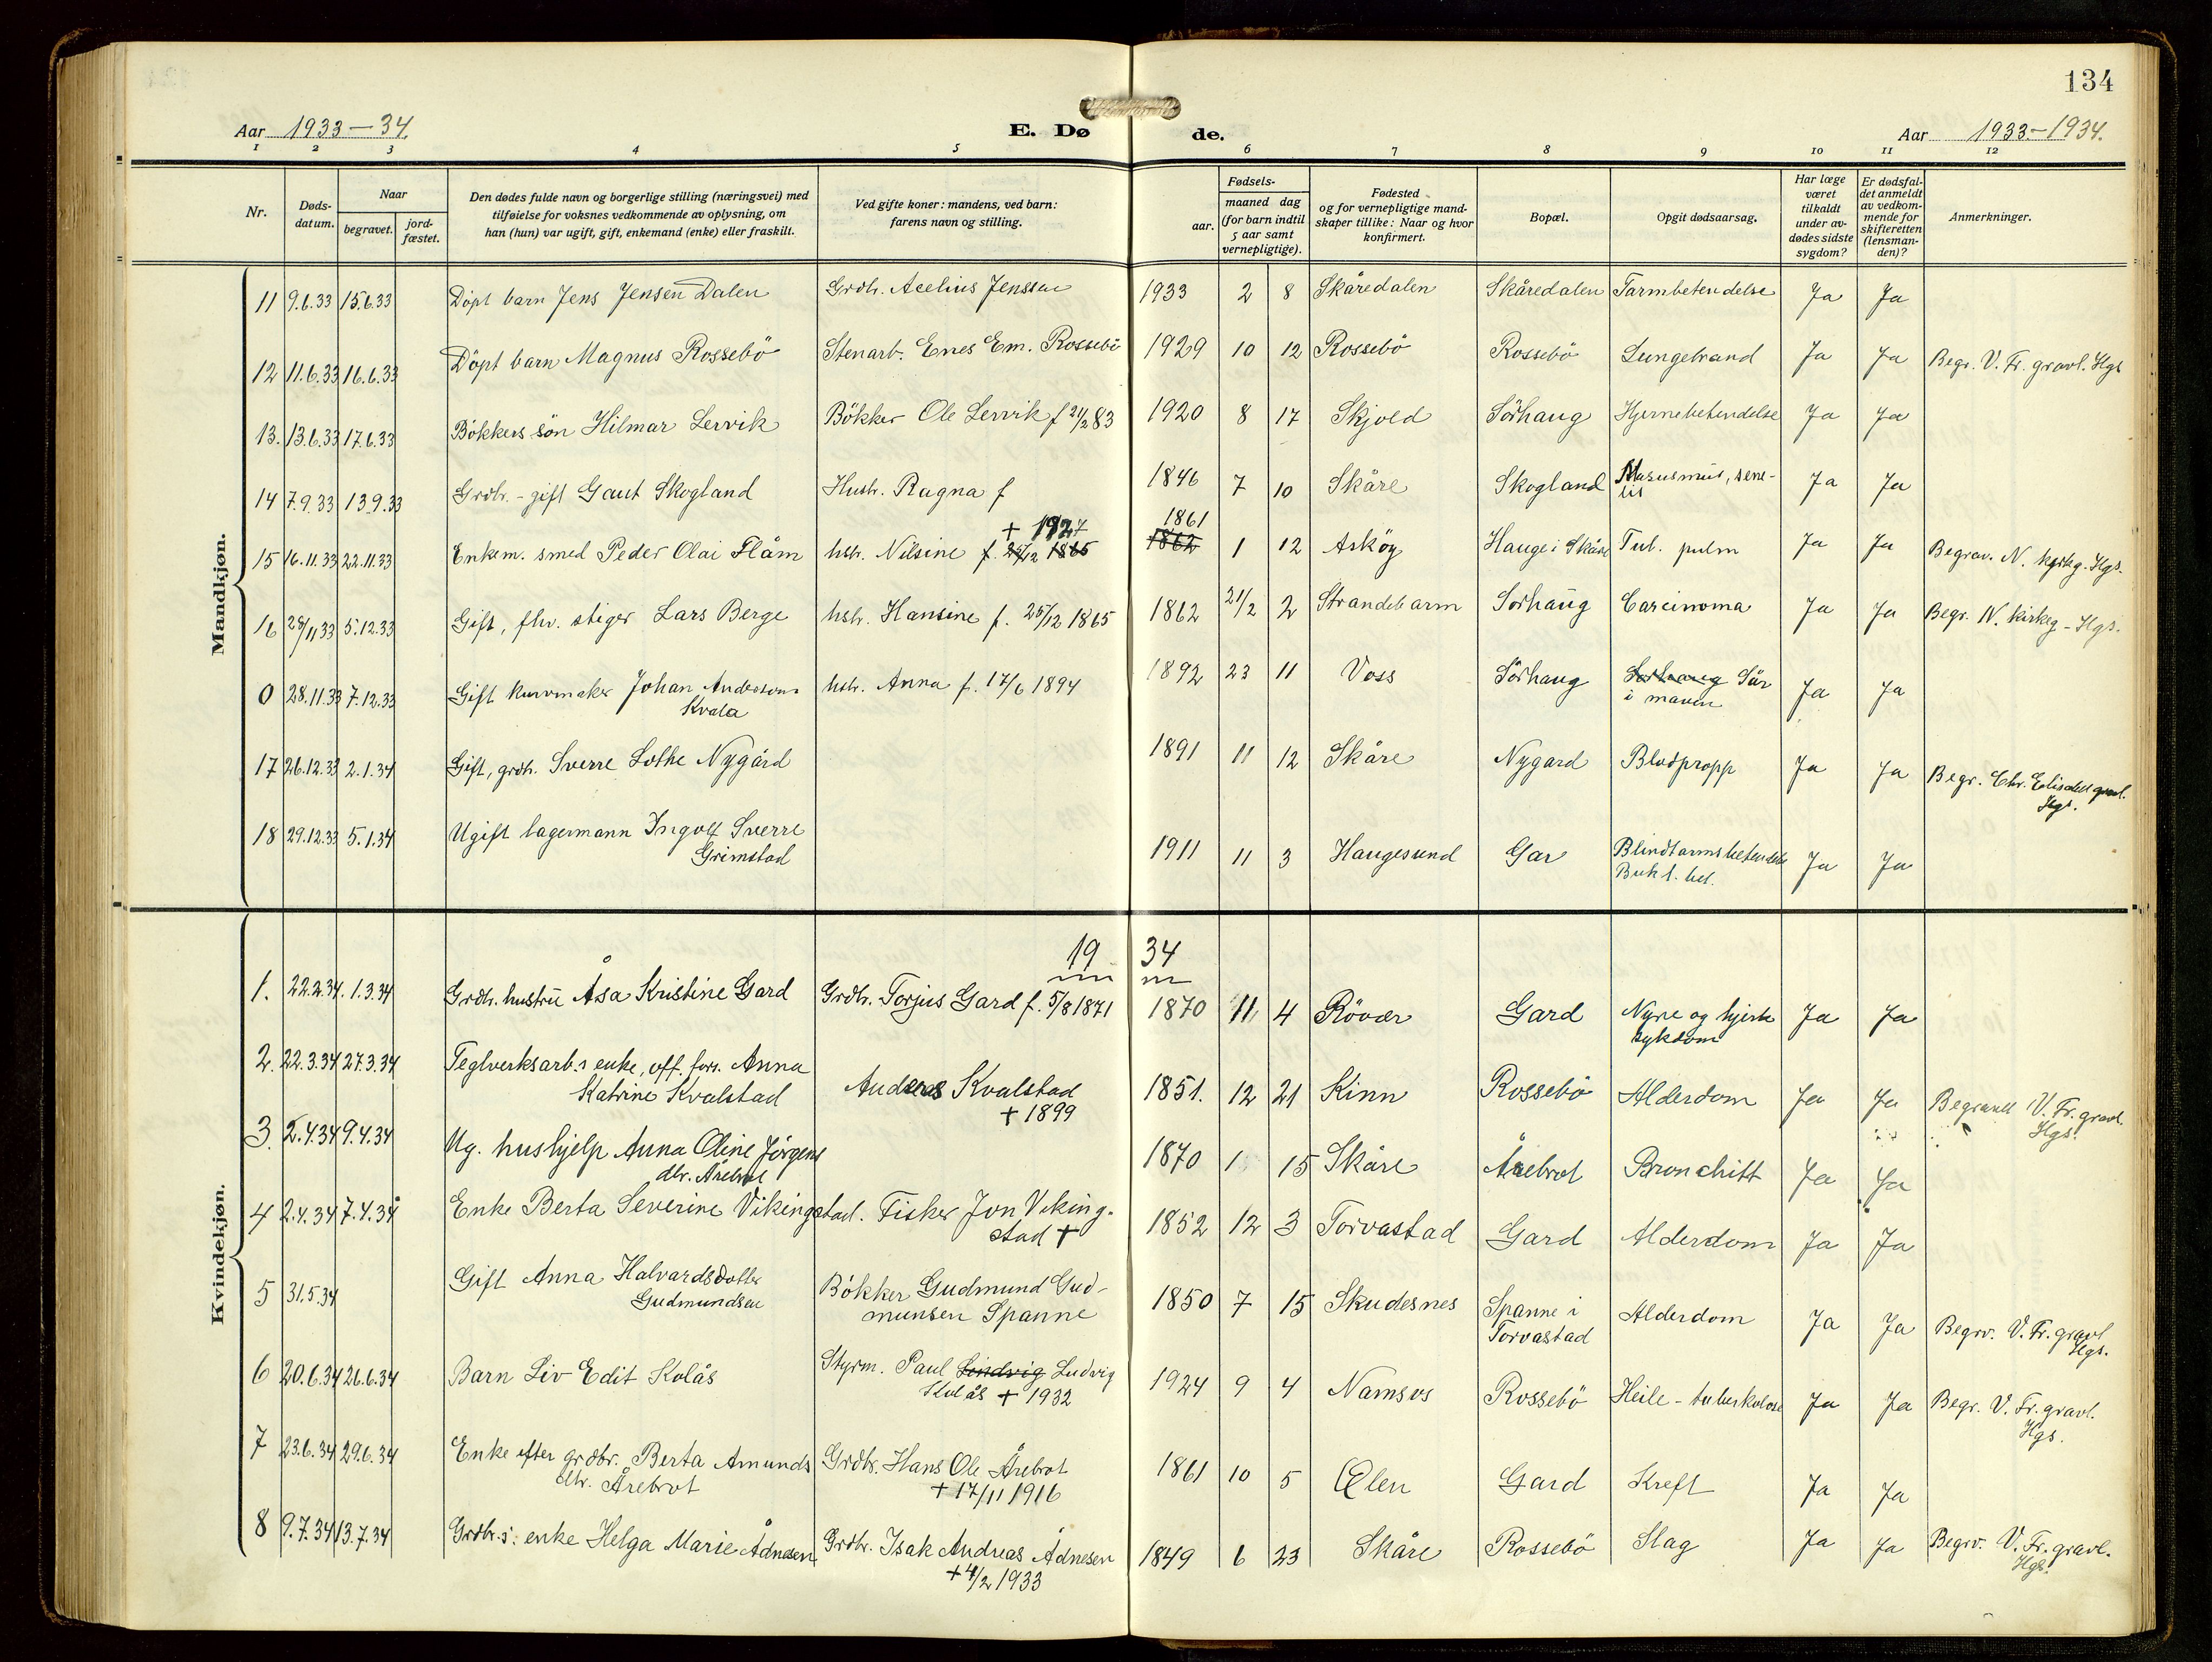 134
Aar 1933–34.
E. Dø de.
Aar 1933–1934.
1 2 3 4 5 6 7 8 9 10 11 12
Nr.
Døds-datum.
Naar
begravet.
jord-fæstet.
Den dødes fulde navn og borgerlige stilling (næringsvei) med
tilføielse for voksnes vedkommende av oplysning, om
han (hun) var ugift, gift, enkemand (enke) eller fraskilt.
Ved gifte koner: mandens, ved barn:
farens navn og stilling.
Fødsels-
aar.
maaned dag
(for barn indtil
5 aar samt
vernepligtige).
Fødested
og for vernepligtige mand-
skaper tillike: Naar og hvor
konfirmert.
Bopæl.
Opgit dødsaarsag.
Har læge
været
tilkaldt
under av-
dødes sidste
sygdom?
Er dødsfal-
det anmeldt
av vedkom-
mende for
skifteretten
(lensman-
den)?
Anmerkninger.
Mandkjøn.
11 9.6.33 15.6.33 Döpt barn Jens Jensen Dalen Grdbr. Jenssen 1933 2 8 Skåredalen Skåredalen Tarmbetendelse Ja Ja
12 11.6.33 16.6.33 Döpt barn Magnus Rossebö Stenarb. Enes Em. Rossebö 1929 10 12 Rossebö Rossebö Lungebrand Ja Ja Begr. V. Fr. gravl. Hgs
13. 13.6.33 17.6.33 Bökkers sön Hilmar Lervik Bökker Ole Lervik f 21/2 83 1920 8 17 Skjold Sörhaug Hjernebetendelse Ja Ja
14 7.9.33 13.9.33 Grdbr. - gift Gaut Skogland Hustr. Ragna f 1846 7 10 Skåre Skogland Marasmus, sene-
lis Ja Ja
+ 1927 1861
15 16.11.33 22.11.33 Enkem. smed Peder Olai Flåm hstr. Nilsine f. 1865 1862 1 12 Asköy Hauge i Skåre Tub. pulm Ja Ja Begrav. N. kirkeg. Hgs.
16 28/11 33 5.12.33 Gift, fhv. stiger Lars Berge hstr. Hansine f. 25/12 1865 1862 21/2 2 Strandebarm Sörhaug Carcinoma Ja Ja Begr. N. kirkeg - Hgs.
0 28.11.33 7.12.33 Gift kurvmaker Johan Anderson
Kvala hstr. Anna f. 17/6 1894 1892 23 11 Voss Sörhaug Sörhaug Sår
i maven Ja Ja
17 26.12.33 2.1.34 Gift, grdb. Sverre Lothe Nygård 1891 11 12 Skåre Nygard Blodpropp Ja Ja Begr. Chr. gravl.
Hgs.
18 29.12.33 5.1.34 Ugift lagermann Ingolf Sverre
Grimstad 1911 11 3 Haugesund Gar Blindtarmsbetendelse
Bukh. bet. Ja Ja
Kvindekjøn.
19 34
1. 22.2.34. 1.3.34 Grdb. hustrü Åsa Kristine Gard Grdb. Torjus Gard f. 5/8 1871 1870 11 4 Rövær Gard Nyre og hjerte
sykdom Ja Ja
2. 22.3.34 27.3.34 Teglverksarb.s enke, off. fors. Anna
Katrine Kvalstad Andreas Kvalstad
+ 1899 1851. 12 21 Kinn Rossebö Alderdom Ja Ja Begravet V. Fr. gravl.
Hgs.
3. 2.4.34 9.4.34 Ug. hushjelp Anna Oline Jörgens
dtr. Årebrot 1870 1 15 Skåre Årebrot Bronchitt Ja Ja
4 2.4.34 7.4.34 Enke Berta Severine Vikingstad. Fisker Jon Viking-
stad + 1852 12 3 Torvastad Gard Alderdom Ja Ja
5 31.5.34 Gift Anna Halvardsdotter
Gudmundsen Bökker Gudmund Gud-
munsen Spanne 1850 7 15 Skudesnes Spanne i
Torvastad Alderdom Ja Ja Begrv. V. Fr. gravl
Hgs.
6 20.6.34 26.6.34 Barn Liv Edit Kolås Styrm. Paul Lindvig Ludvig
Kolås + 1932 1924 9 4 Namsos Rossebö Heile - tuberkulose Ja Ja Begr. V. Fr. gravl.
Hgs.
7 23.6.34 29.6.34 Enke efter grdbr. Berta Amunds
dtr. Årebrot Grdbr. Hans Ole Årebrot
+ 17/11 1916 1861 10 5 Ølen Gard Kreft Ja Ja
8 9.7.34 13.7.34 Grdbr.s: enke Helga Marie Ådnesen Grdbr. Isak Andreas Ådnesen
+ 4/2 1933 1849 6 23 Skåre Rossebö Slag Ja Ja Begrv. V. Fr. gravl.
Hgs.